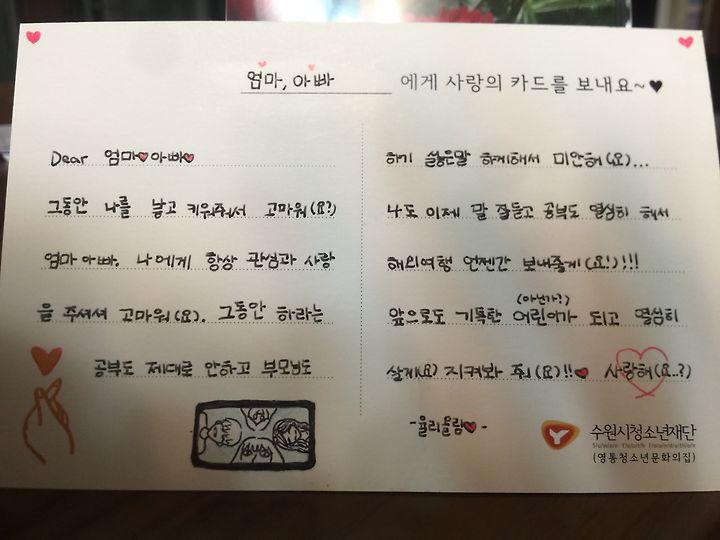 엄마, 아빠 에게 사랑의 카드를 보내요~♥
Dear 엄마♥아빠♥
그동안 나를 낳고 키워줘서 고마워(요?)
엄마 아빠. 나에게 항상 관심과 사랑
을 주셔서 고마워(요). 그동안 하라는
공부도 제대로 안하고 부모님도
하기 싫은말 하게해서 미안해(요)...
나도 이제 말 잘듣고 공부도 열심히 해서
해외여행 언젠간 보내줄게(요!)!!!
(아닌가?)
앞으로도 기특한 어린이가 되고 열심히
살게(요) 지켜봐 줘(요)!!♥ 사랑해(요..?)
-율리올림♥-
수원시청소년재단
(영통청소년문화의집)